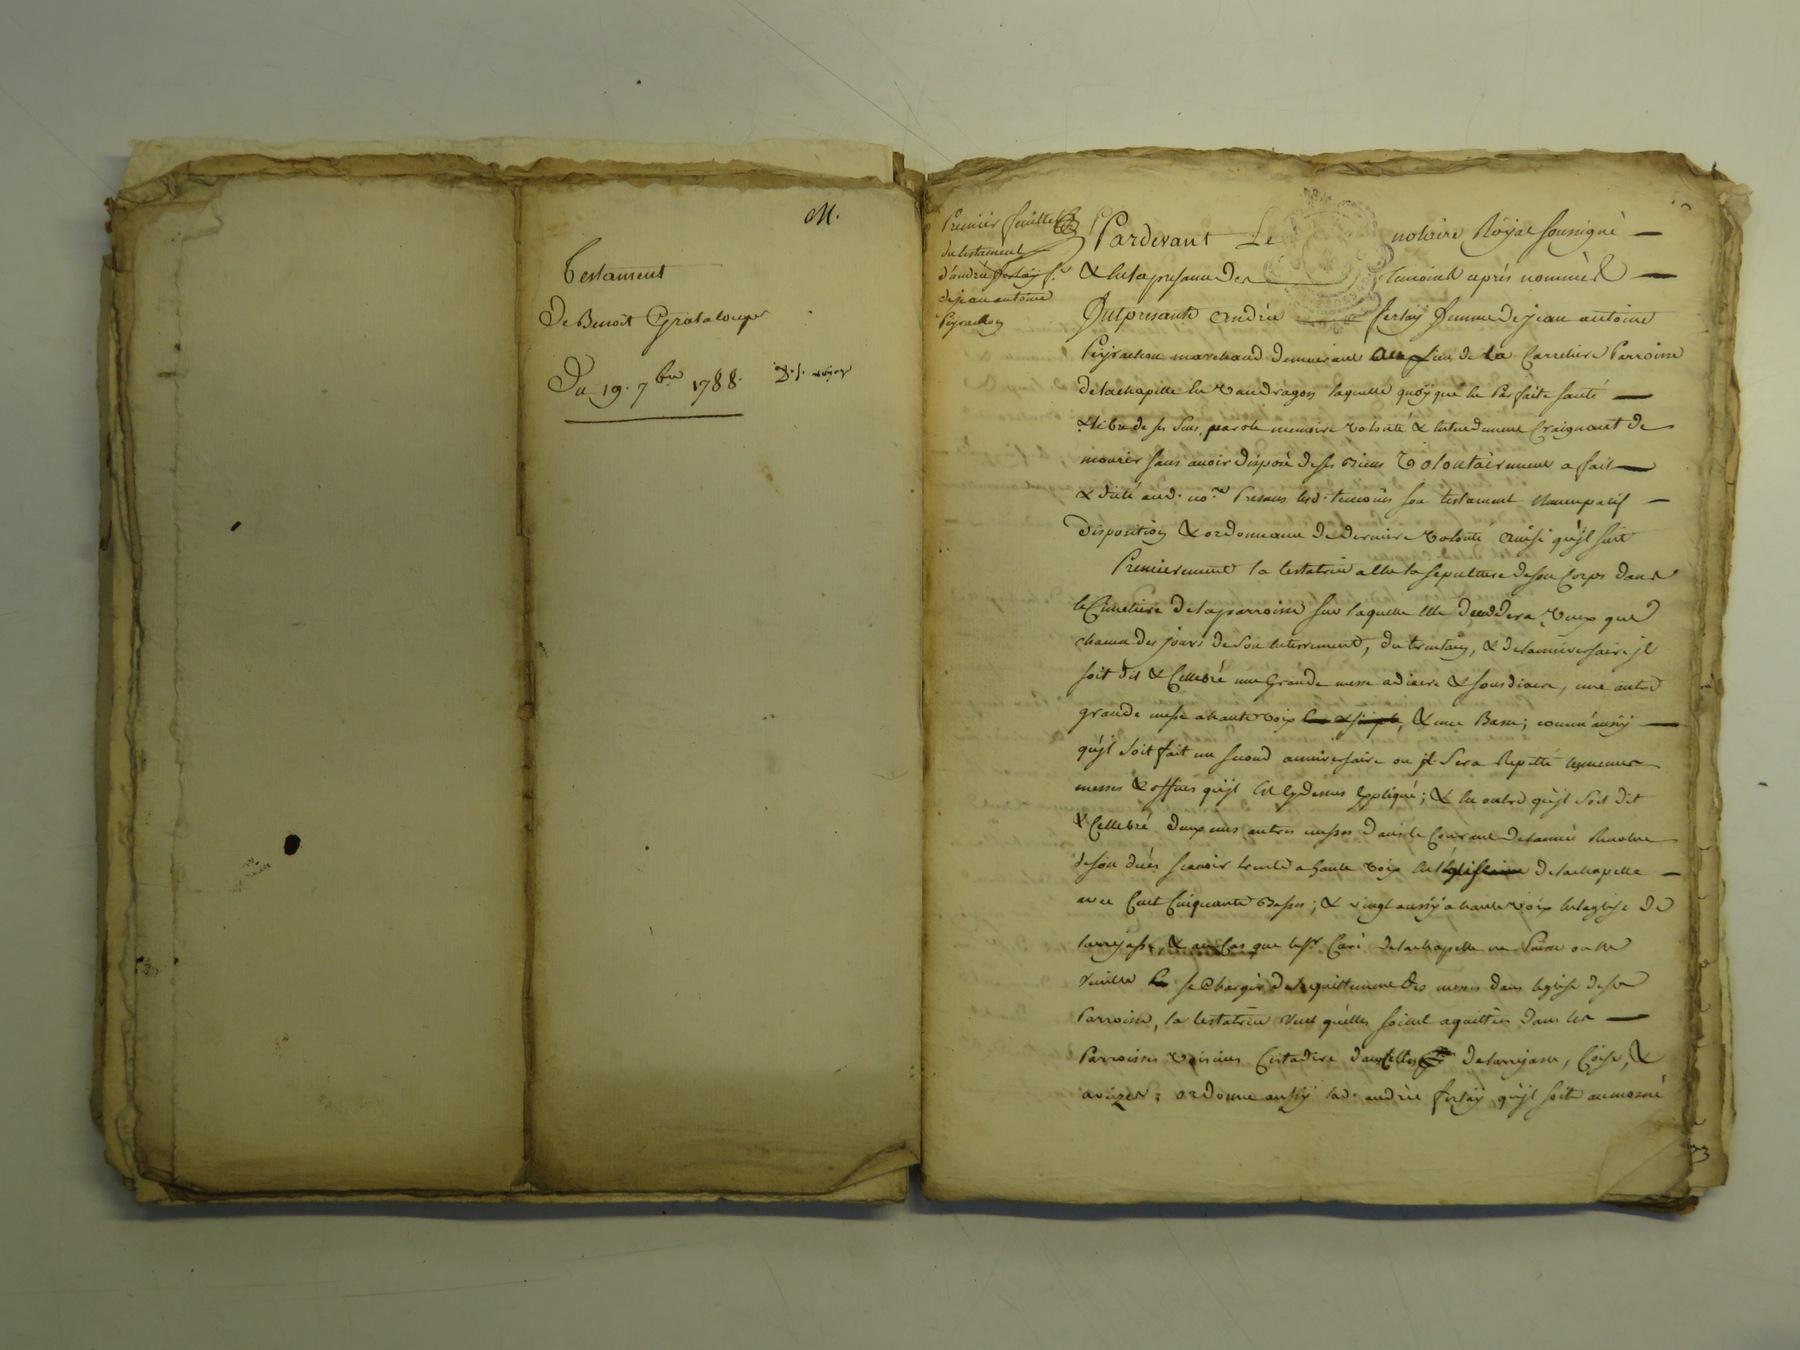 M.
Testament
De Benoit Grataloup
Du 19. 7bre 1788.
Premier feuillet
du testament
d'andrée ferlay f.e
de jean antoine
Peyrachon
Pardevant Le notaire Röyal soussigné
& en la presance des temoins après nommés
fut presante andrée ferlaÿ femme de jean antoine
Peÿrachon marchand demeurant au lieu de la Carreliere Parroisse
de lachapelle en Vaudragon laquelle quoÿque en Parfaite santé
& libre de ses sens, parole memoire volonté & entendement Craignant de
mourir sans avoir disposé de ses Biens Volontairement a fait
& dicté aud. no.re Presans lesd. temoins son testament Nuncupatif
disposition & ordonnance de derniere volonté ainsi qu'ÿl suit
Premierement la testatrice a Elu la sepulture de son Corps dans
le Cimetiere de la parroisse sur laquelle Elle deceddera, Veux que
chacun des jours de son enterrement, du trentain, & de lanniversaire jl
soit dit & Cellebré une Grande messe a diacre & sousdiacre, une autre
grande messe a haute voix & une Basse; comm'aussÿ
qu'ÿl soit fait un second anniversaire ou jl sera Repetté les memes
messes & offices qu'ÿl est cydessus Expliqué; & en outre qu'ÿl soit dit
& Cellebré deux cens autres messes dans le Courant de lannée Revolue
de son décés scavoir trente a haute voix en l'Eglise de lachapelle
avec Cent Cinquante Basses; & vingt aussÿ a haute voix en leglise de
larrejasse, & au Cas que le sr. Curé de lachapelle ne Puisse ou ne
Veuille se Charger de lacquittement des messes dans leglise de sa
Parroisse, la testatrice veut quèlles soient aquittées dans les
Parroisses Voisines Cestadire dans celles de larrejasse, Coise, &
aveizes; ordonne aussÿ lad. andrée ferlaÿ qu'ÿl soit aumosné